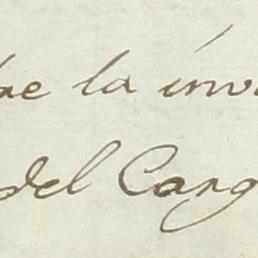 la inv
del Carg